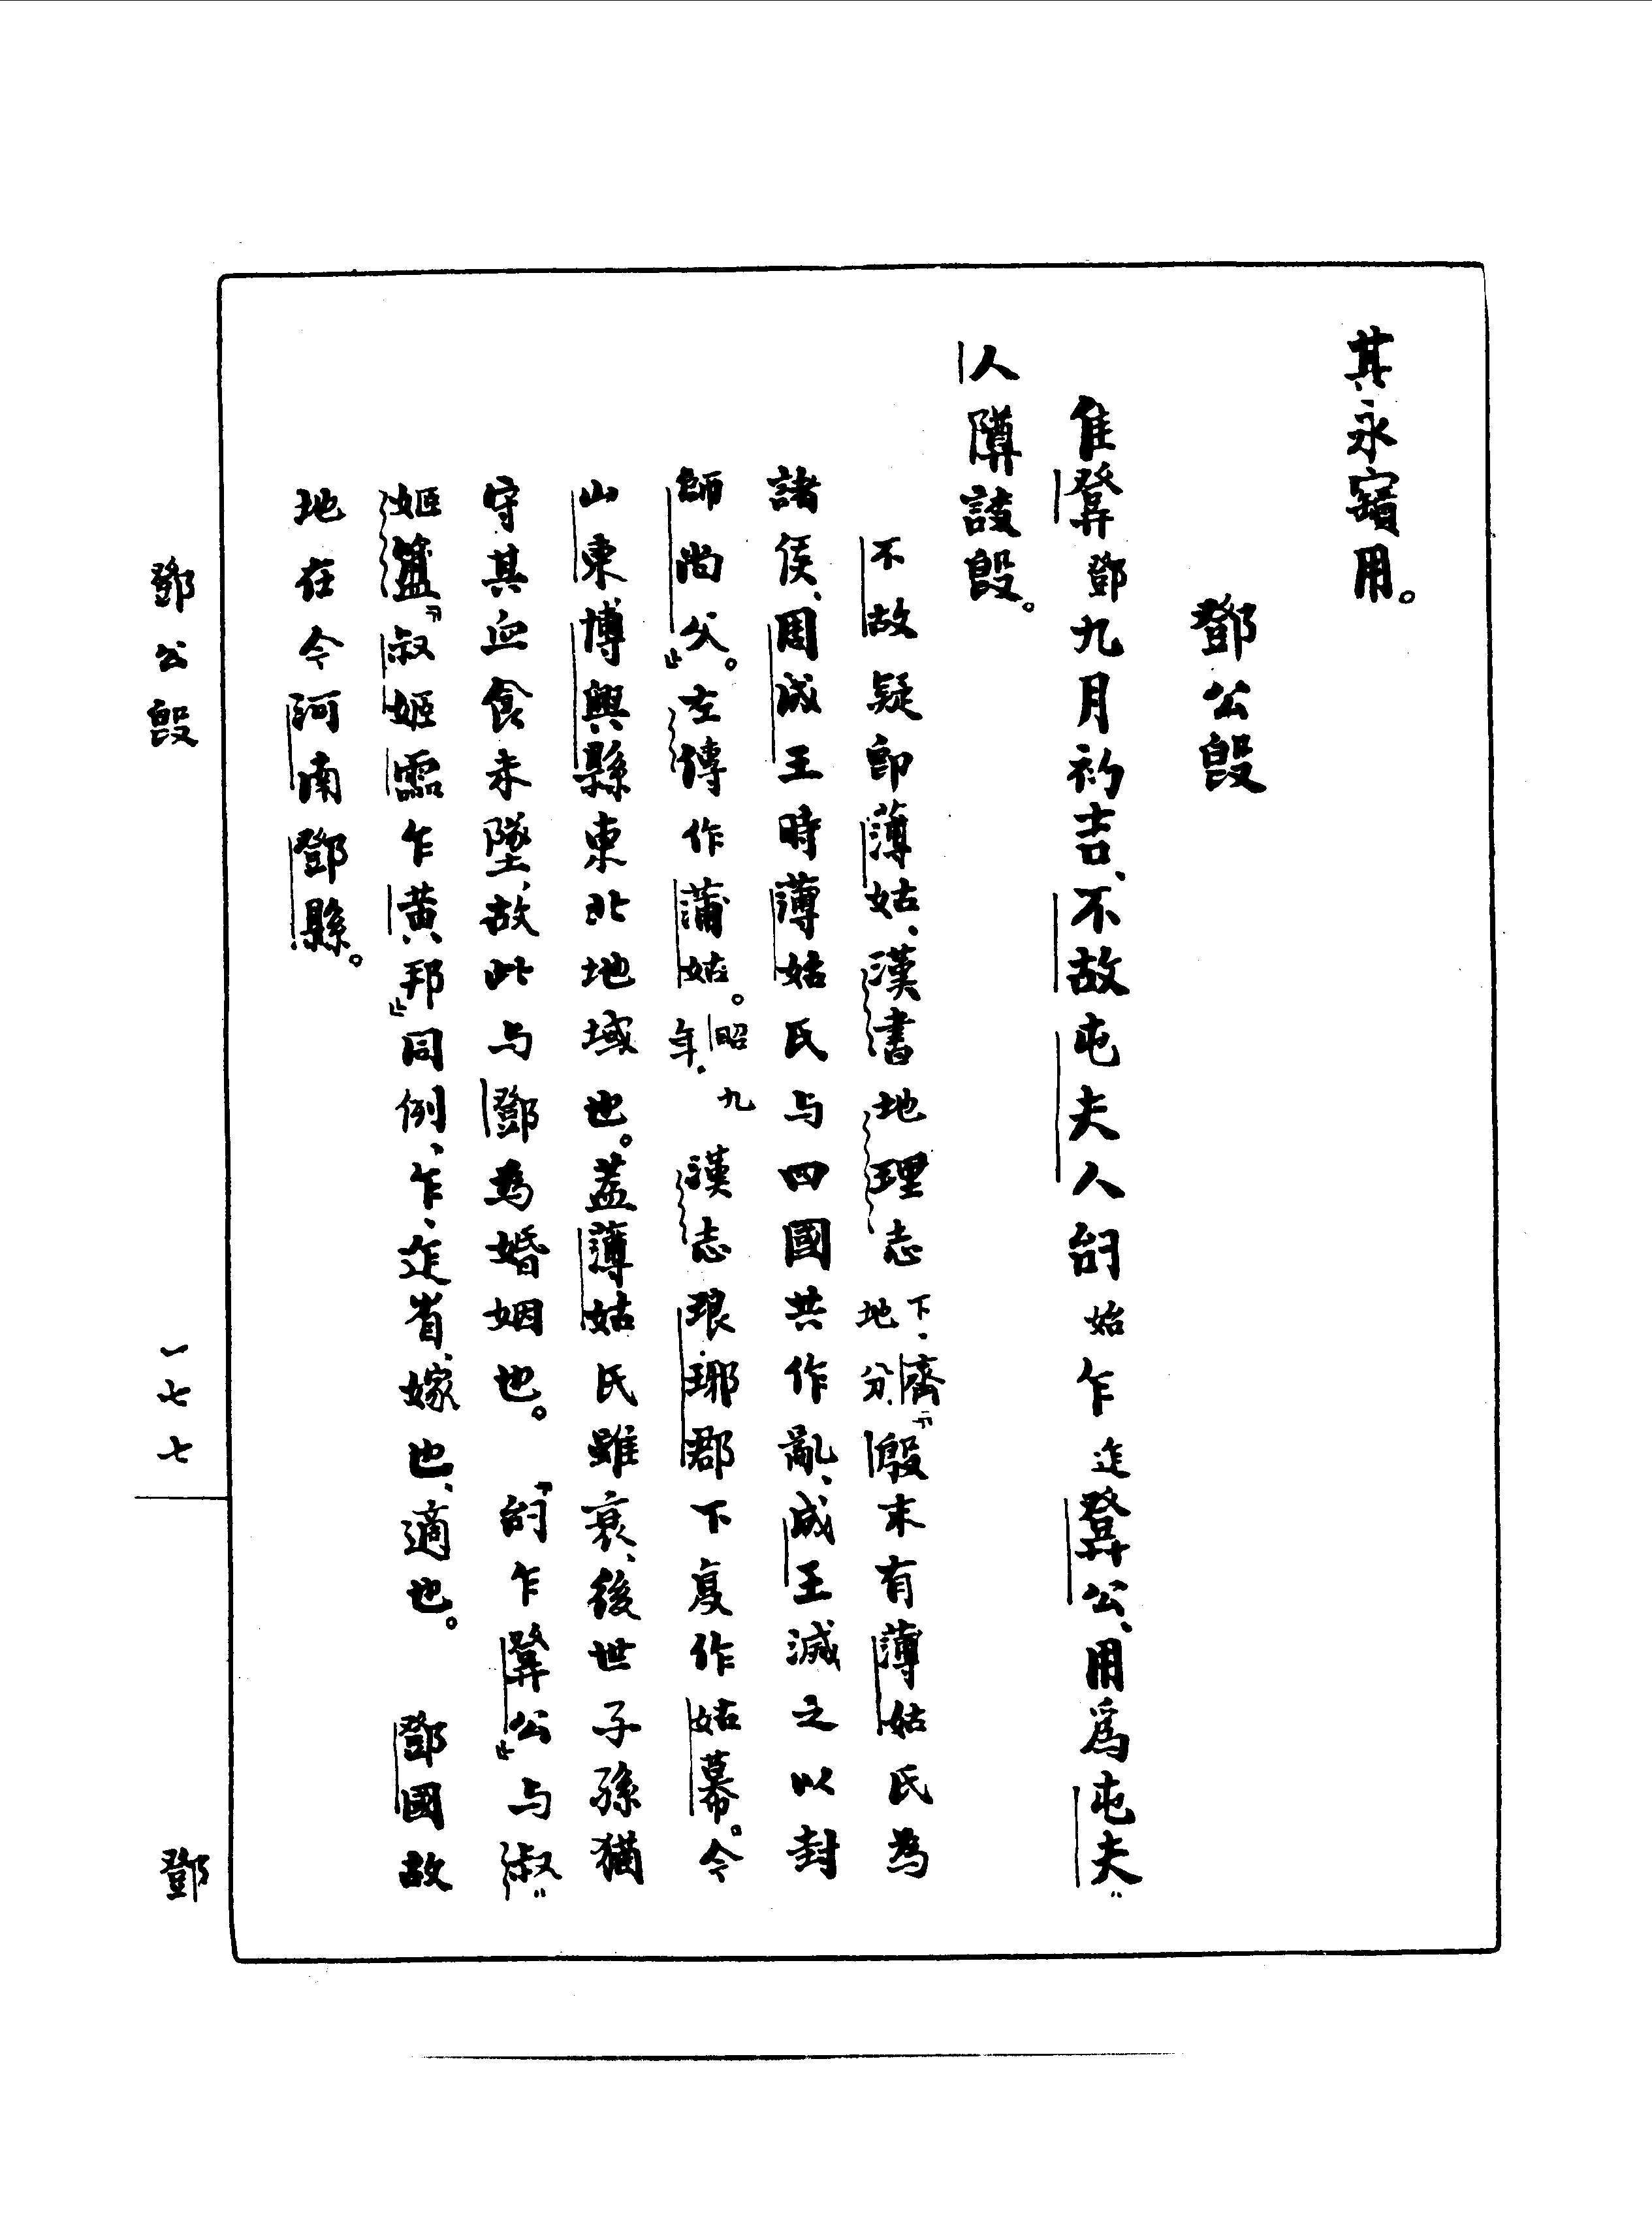 其永寶用。
鄧公𣪘
隹𤼷鄧九月礿吉、不故屯夫人𠨘始乍迮𤼷公、用爲屯夫〻
人障諓𣪘。
不故疑即薄姑、漢書地理志下·齊地分『殷末有薄姑氏為
諸侯、周成王時薄姑氏与四國共作亂、成王滅之以封
師尚父。』左傳作蒲姑。昭九年. 漢志琅·琊郡下𡕨作姑幕。今
山東博興縣東北地域也。葢薄姑氏雖衰、後世子孫猶
守其血食未墜、故此与鄧為婚姻也。 『𠨘乍𤼷公』与淑〻
姬簠『叔姬霝乍黃邦』同例、乍、迮皆、嫁也、適也。 鄧國故
地在今河南鄧縣。
鄧公𣪘 一七七 鄧